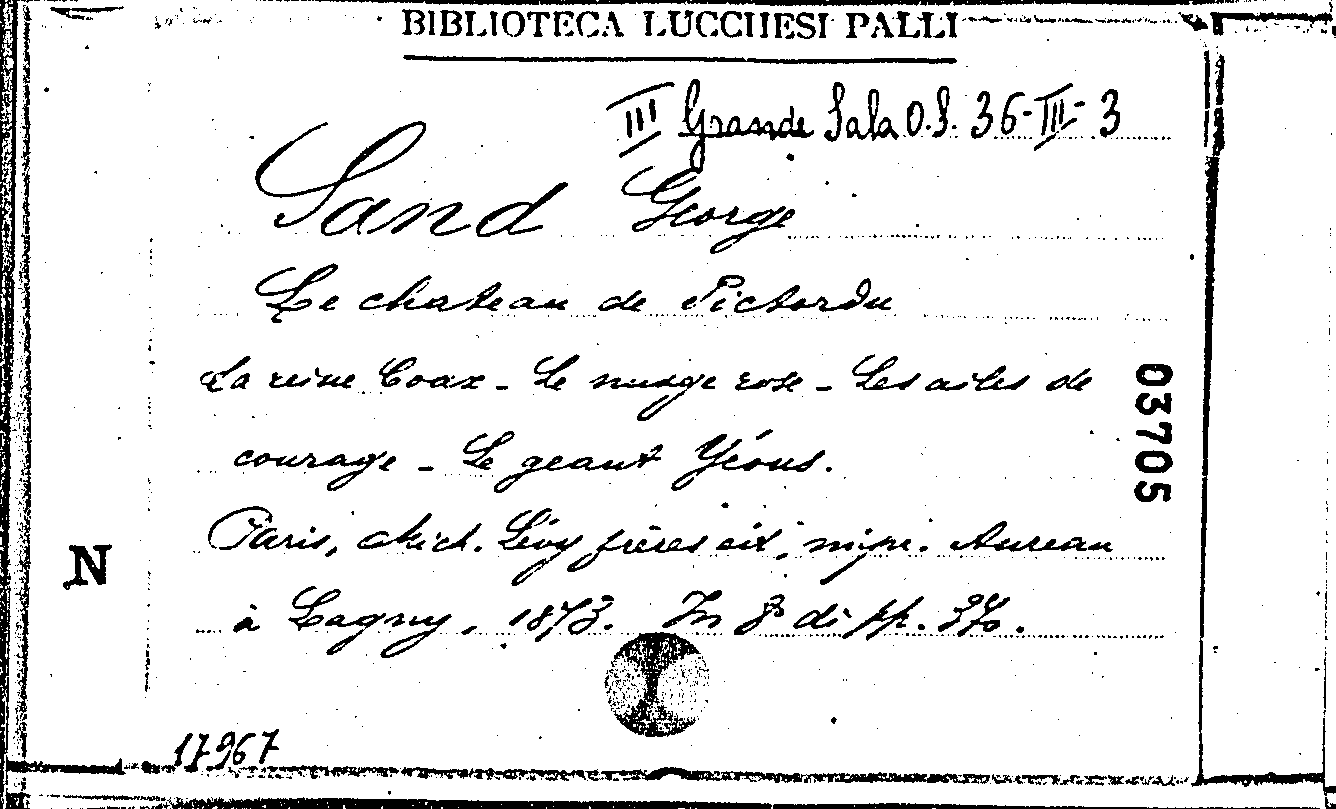 BIBLIOTECA LUCCHESI PALLI
III Grande Sala O.S. 36-III-3
Sand George
Le chateau de Pictordu
La reine Coax - Le nuage rose - Les ailes de
courage - Le geant Yéous.
Paris, Mich. Lévy frères éd., impr. Aureau
à Lagny, 1873. In 8° di pp. 370.
03705
N
17967